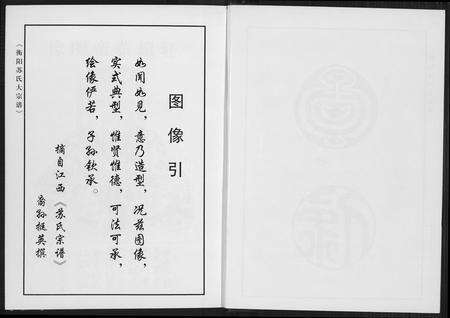 图像引
如闻如见，意乃造型，况兹图像，
实式典型，惟贤惟德，可法可承，
绘像俨若，子孙钦承。
摘自江西《苏氏宗谱》
裔孙挺英撰
《衡阳苏氏大宗谱》